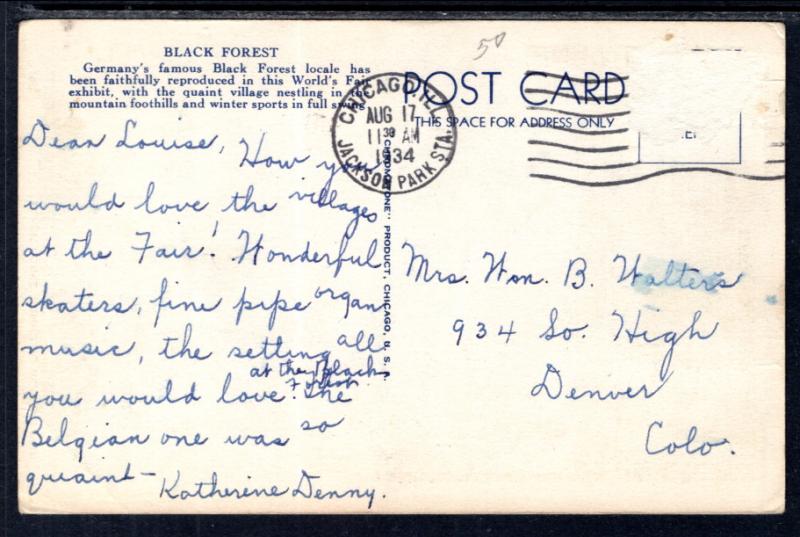 BLACK FOREST
Germany's famous Black Forest locale has
been faithfully reproduced in this World's Fair
exhibit, with the quaint village nestling in the
mountain foothills and winter sports in full swing
50
POST CARD
THIS SPACE FOR ADDRESS ONLY
CHICAGO, ILL.
AUG 17
11 30 AM
1934
JACKSON PARK STA.
PRODUCT, CHICAGO, U. S. A.
Dear Louise, How you
would love the villages
at the Fair! Wonderful
skaters, fine pipe organ
music, the setting all
you would love at the Black
Forest. The
Belgian one was so
quaint—
Katherine Denny.
Mrs. Wm. B. Walters
934 So. High
Denver
Colo.